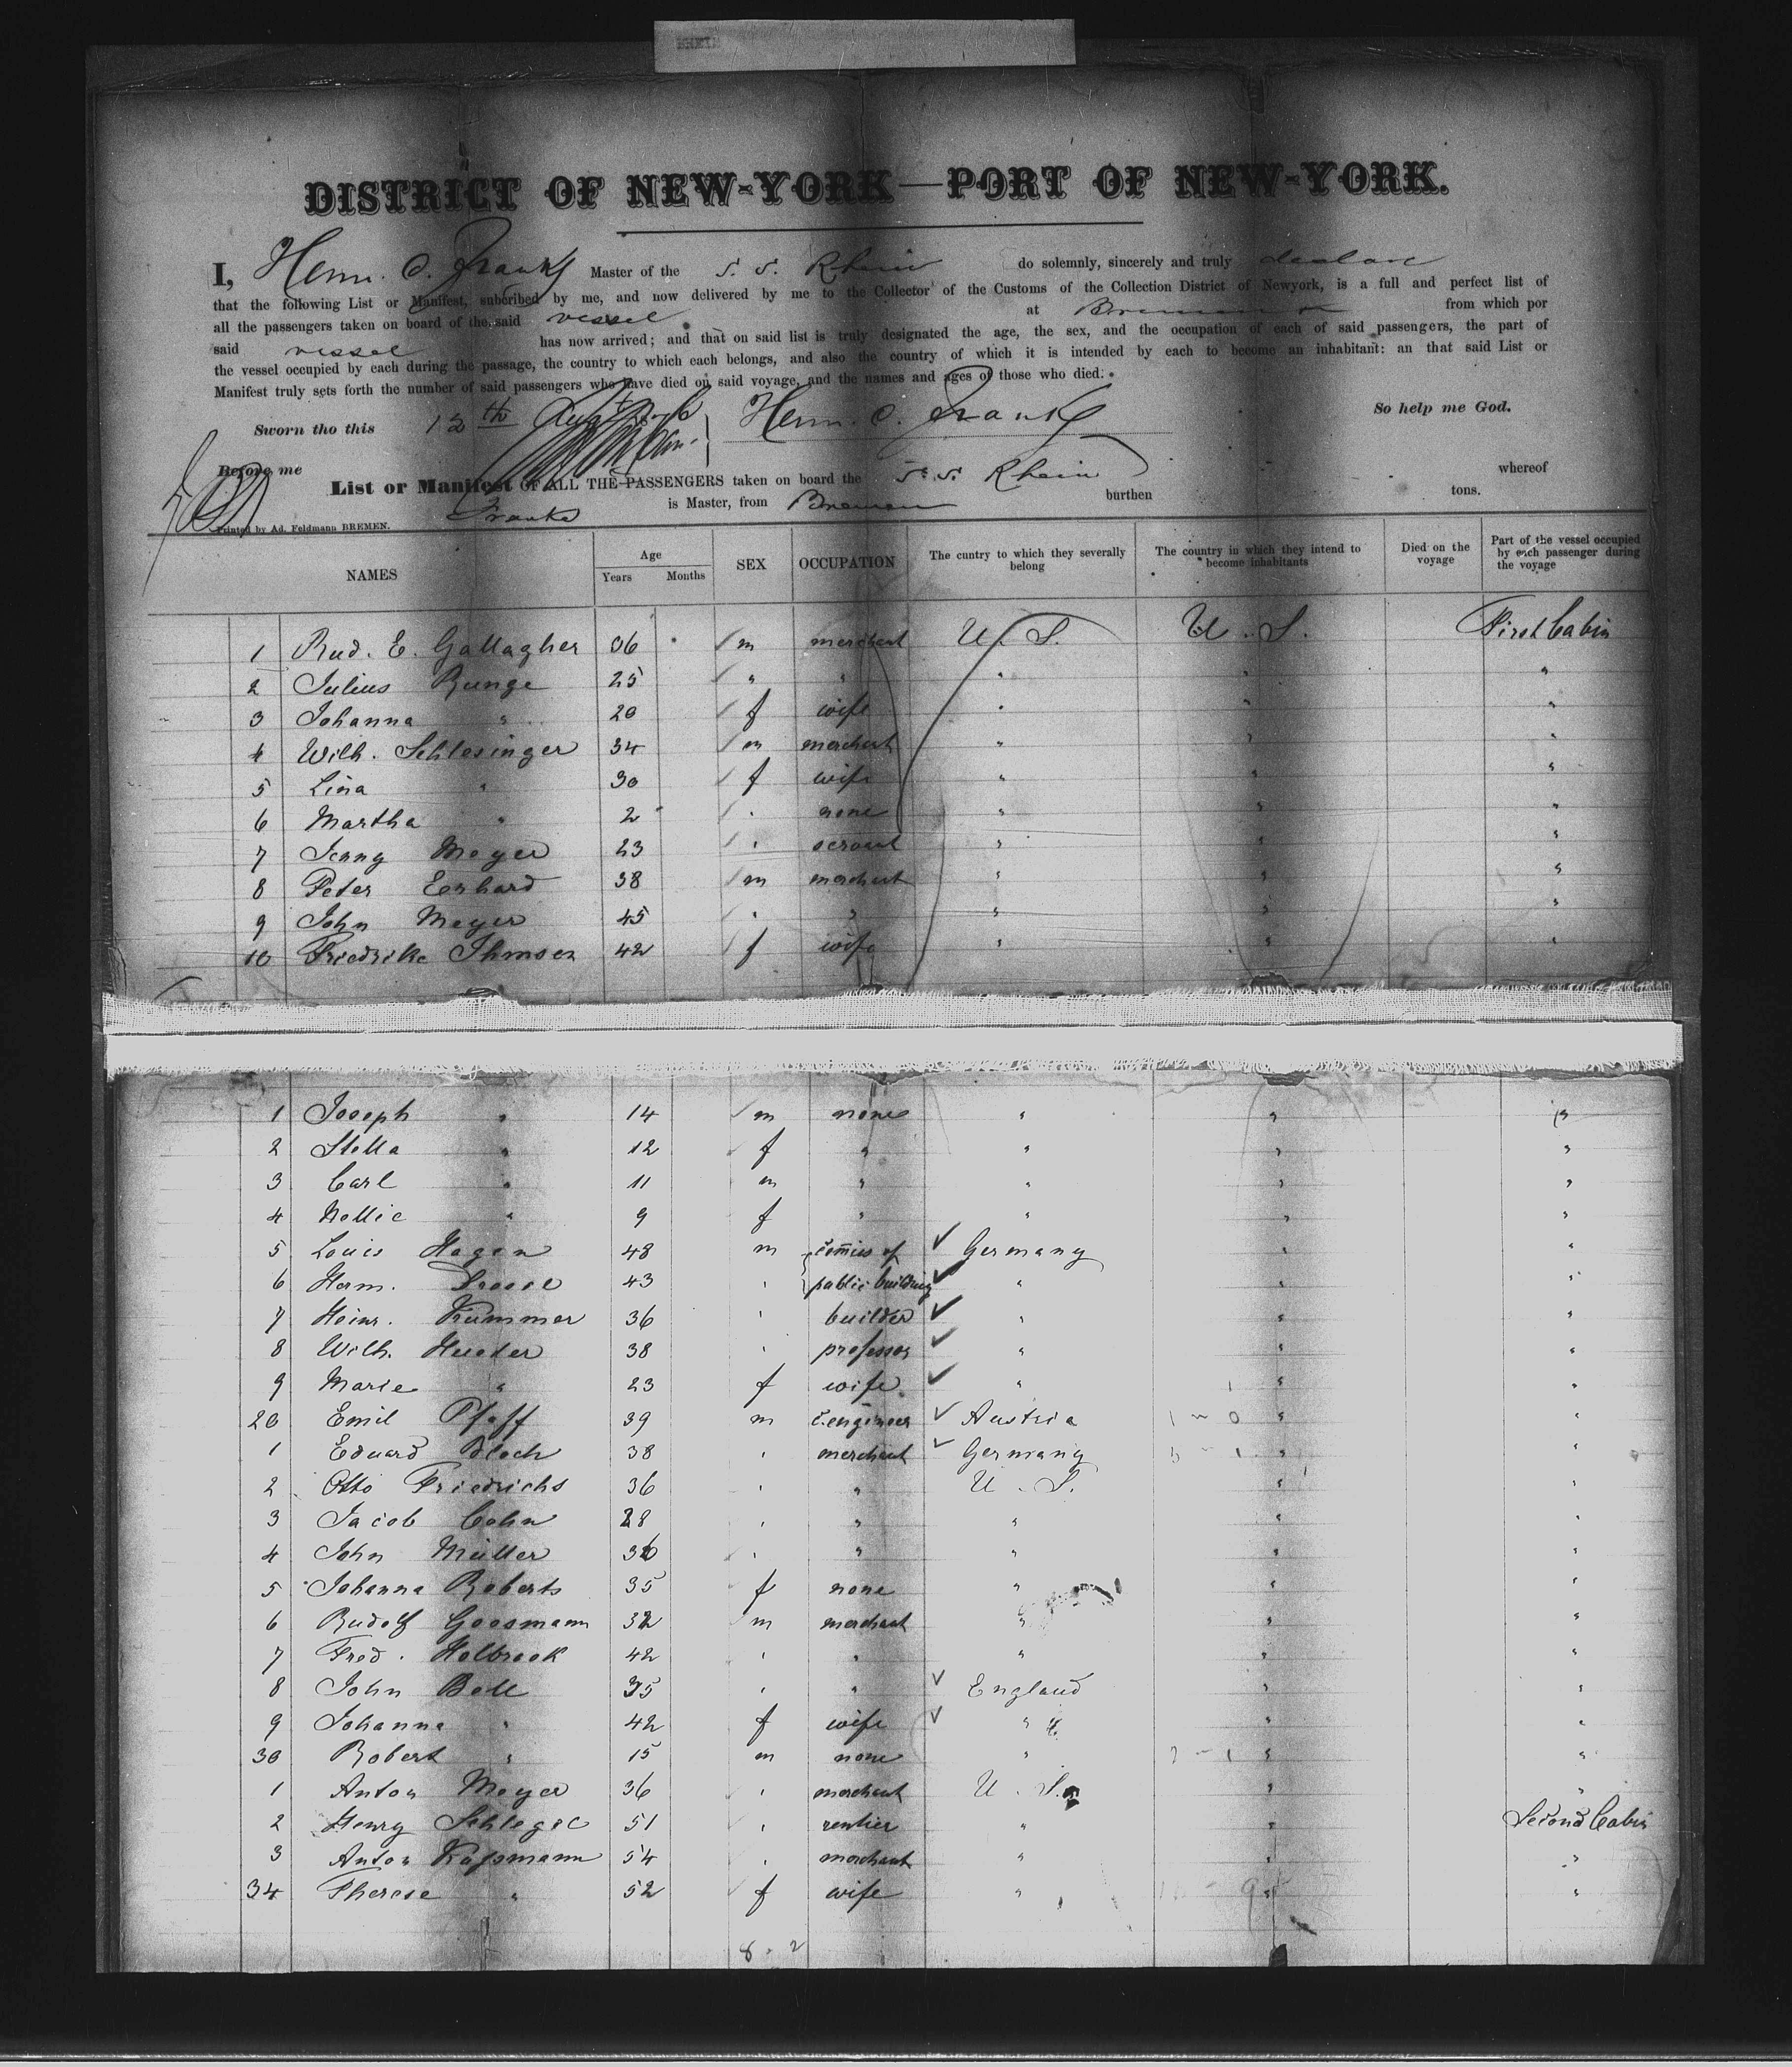 DISTRICT OF NEW-YORK—PORT OF NEW-YORK.
I, Herm. C. Franke Master of the S. S. Rhein do solemnly, sincerely and truly declare
that the following List or Manifest, subcribed by me, and now delivered by me to the Collector of the Customs of the Collection District of Newyork, is a full and perfect list of
all the passengers taken on board of the said vessel at Bremen from which por
said vessel has now arrived; and that on said list is truly designated the age, the sex, and the occupation of each of said passengers, the part of
the vessel occupied by each during the passage, the country to which each belongs, and also the country of which it is intended by each to become an inhabitant: an that said List or
Manifest truly sets forth the number of said passengers who have died on said voyage, and the names and ages of those who died.
So help me God.
Sworn tho this 12th Aug Herm. C. Franke
Before me
List or Manifest OF ALL THE PASSENGERS taken on board the S. S. Rhein whereof
Franke is Master, from Bremen burthen tons.
Printed by Ad. Feldmann BREMEN.
NAMES Age Years Months SEX OCCUPATION The cuntry to which they severally belong The country in which they intend to become inhabitants Died on the voyage Part of the vessel occupied by each passenger during the voyage
1 Rud. E. Gallagher 36 m merchant U. S. U. S. First Cabin
2 Julius Runge 25 " " " " "
3 Johanna " 20 f wife " " "
4 Wilh. Schlesinger 34 m merchant " " "
5 Lina " 30 f wife " " "
6 Martha " 2 " none " " "
7 Jenny Meyer 23 " servant " " "
8 Peter Erhard 38 m merchant " " "
9 John Meyer 45 " " " " "
10 Friedrike Ihmsen 42 f wife " " "
1 Joseph " 14 m none " " "
2 Stella " 12 f " " " "
3 Carl " 11 m " " " "
4 Nellie " 9 f " " " "
5 Louis Hagen 48 m comis of Germany " "
6 Herm. 43 " public building " " "
7 Heinr. Kummer 36 " builder " " "
8 Wilh. Hueter 38 " professor " " "
9 Marie " 23 f wife " " "
20 Emil Pfaff 39 m c. engineer Austria " "
1 Eduard Bloch 38 " merchant Germany " "
2 Otto Friedrichs 36 " " U. S. " "
3 Jacob Cohn 28 " " " " "
4 John Müller " " " " "
5 Johanna Roberts 35 f none " " "
6 Rudolf Goosmann 32 m merchant " " "
7 Fred. Holbrook 42 " " " " "
8 John Bell 35 " " England " "
9 Johanna " 42 f wife " " "
30 Robert " 15 m none " " "
1 Anton Meyer 36 " merchant U. S. " "
2 Henry Schlegel 51 " rentier " " Second Cabin
3 Anton Kußmann 54 " merchant " " "
34 Therese " 52 f wife " " "